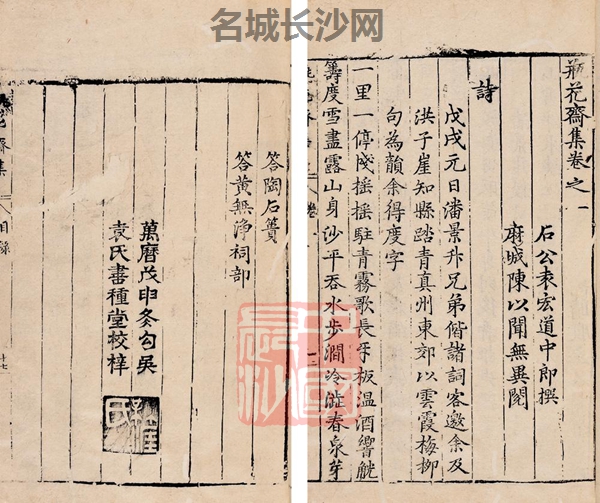 名城长沙网
瓶花齋集卷之一
石公袁宏道中郎撰
麻城陳以聞無異閱
詩
戊戌元日潘景升兄弟偕諸詞客邀余及
洪子崖知縣踏青真州東郊以雲霞梅柳
句為韻余得度字
一里一停驂搖搖駐青霧歌長牙板温酒響觥
籌度雪盡露山身沙平吞水步澗冷澁春泉芽
答陶石簣
答黃無淨祠部
萬曆戊申冬勾吳
袁氏書種堂校梓
目錄
中國
長沙